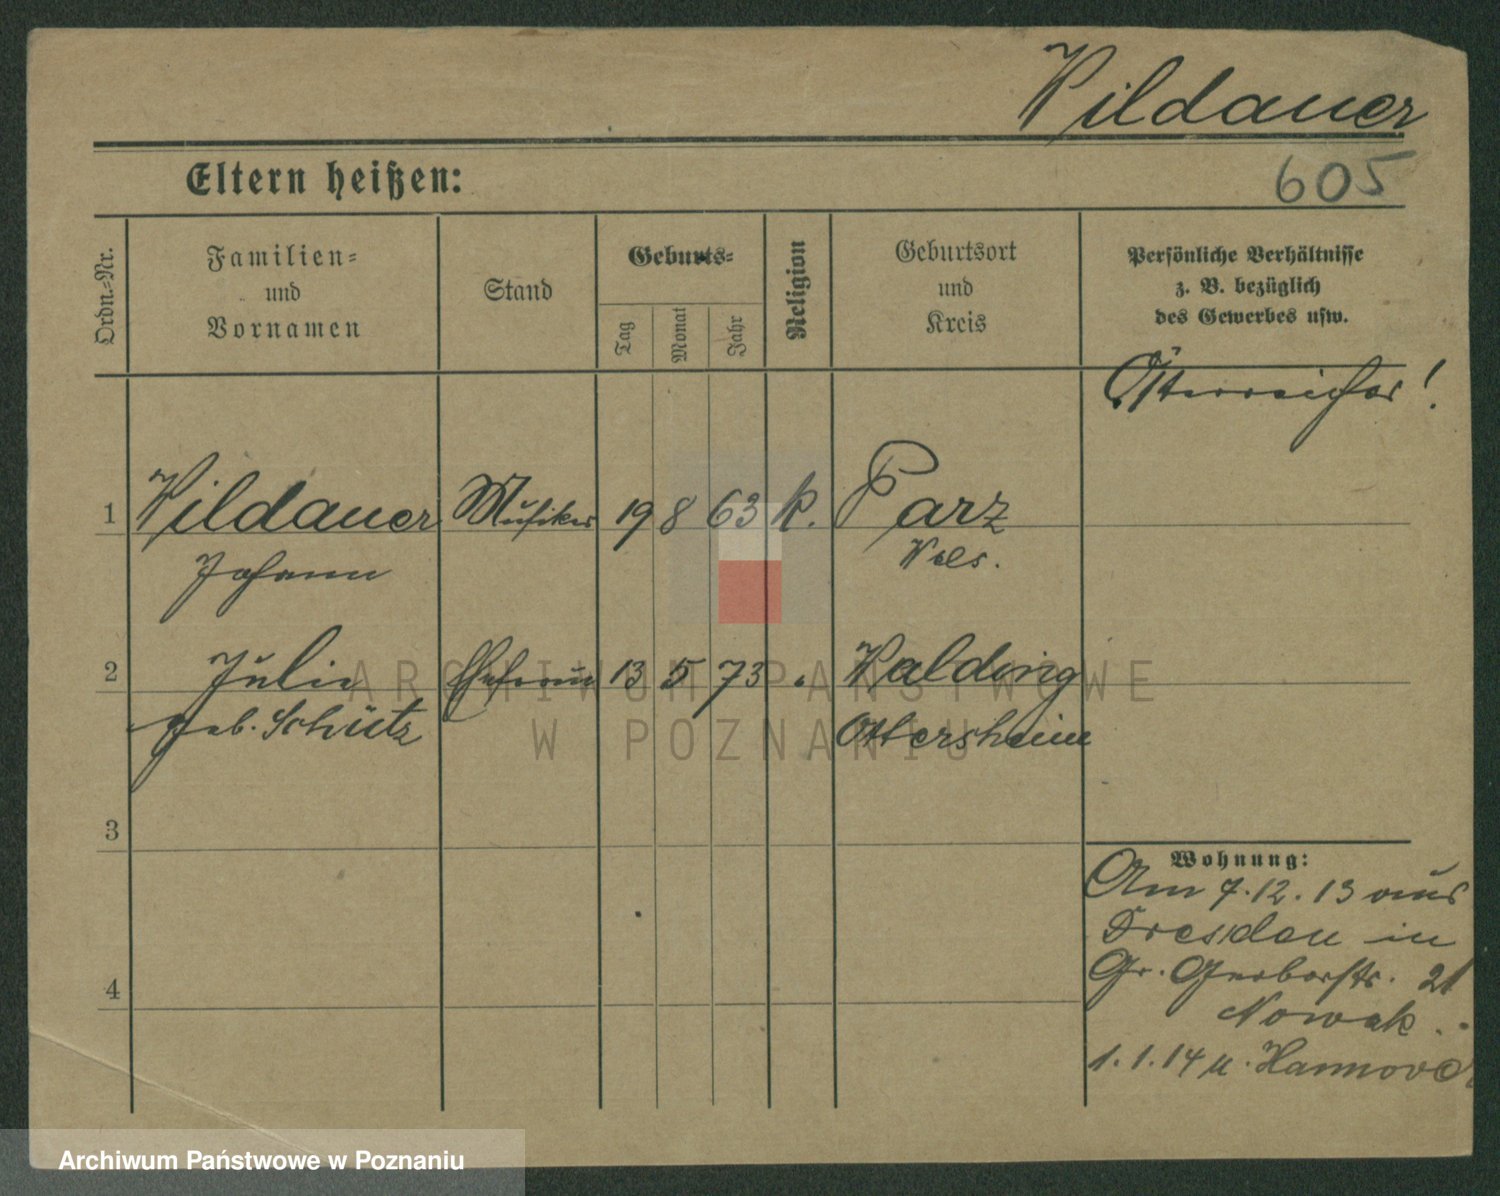 Wildauer
605
Eltern heißen:
Ordn.-Nr.
Familien-
und
Vornamen
Stand
Geburts-
Tag
Monat
Jahr
Religion
Geburtsort
und
Kreis
Persönliche Verhältnisse
z. B. bezüglich
des Gewerbes usw.
Österreicher!
1 Wildauer Musiker 19 8 63 k. Parz
Johann Wels.
2 Julie Ehefrau 13 5 73 " Walding
geb. Schütz Ottersheim
3
4
Wohnung:
Am 7.12.13 aus
Dresden in
Gr. Gerberstr. 21
Nowak.
1.1.14 n. Hannover
ARCHIWUM PAŃSTWOWE
W POZNANIU
Archiwum Państwowe w Poznaniu